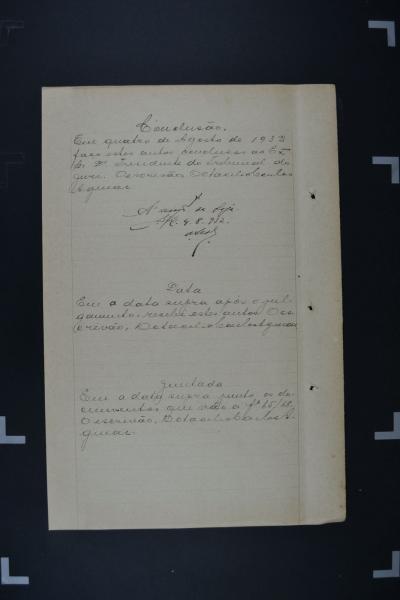 Conclusão.
Em quatro de Agosto de 1932
faço estes autos conclusos ao
Presidente do Tribunal do
Jury. O escrivão Octacilio Carlos
Aguiar
4.8.932.
Data
Em a data supra após o jul-
gamento, recebi estes autos O es-
crivão, Octacilio Carlos Aguiar
Juntada
Em a data supra junto os do-
cumentos que vão a fs 65/68.
O escrivão, Octacilio Carlos A-
guiar.